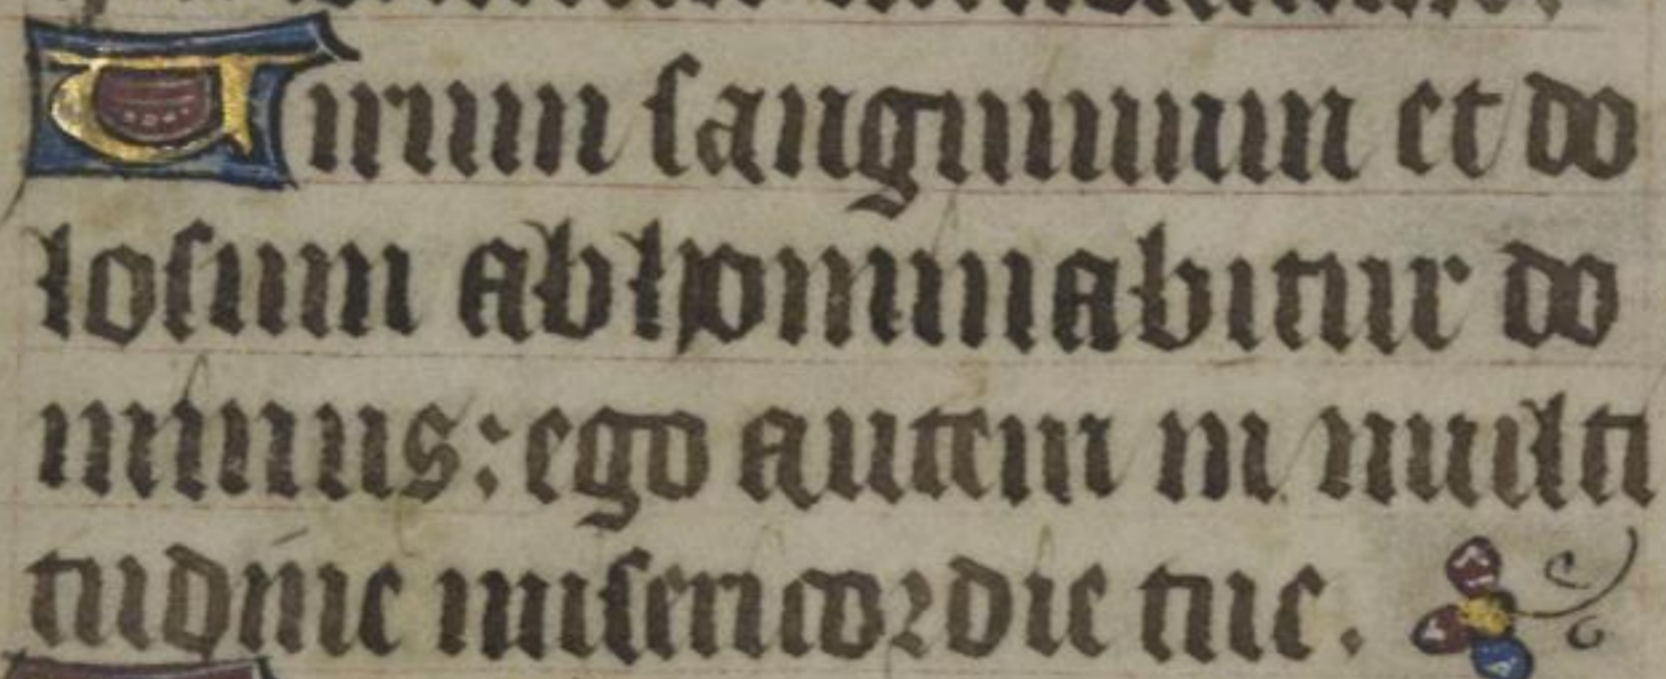 Uirum sanguinum et do
losum abhominabitur do
minus: ego autem in multi
tudine misericordie tue.